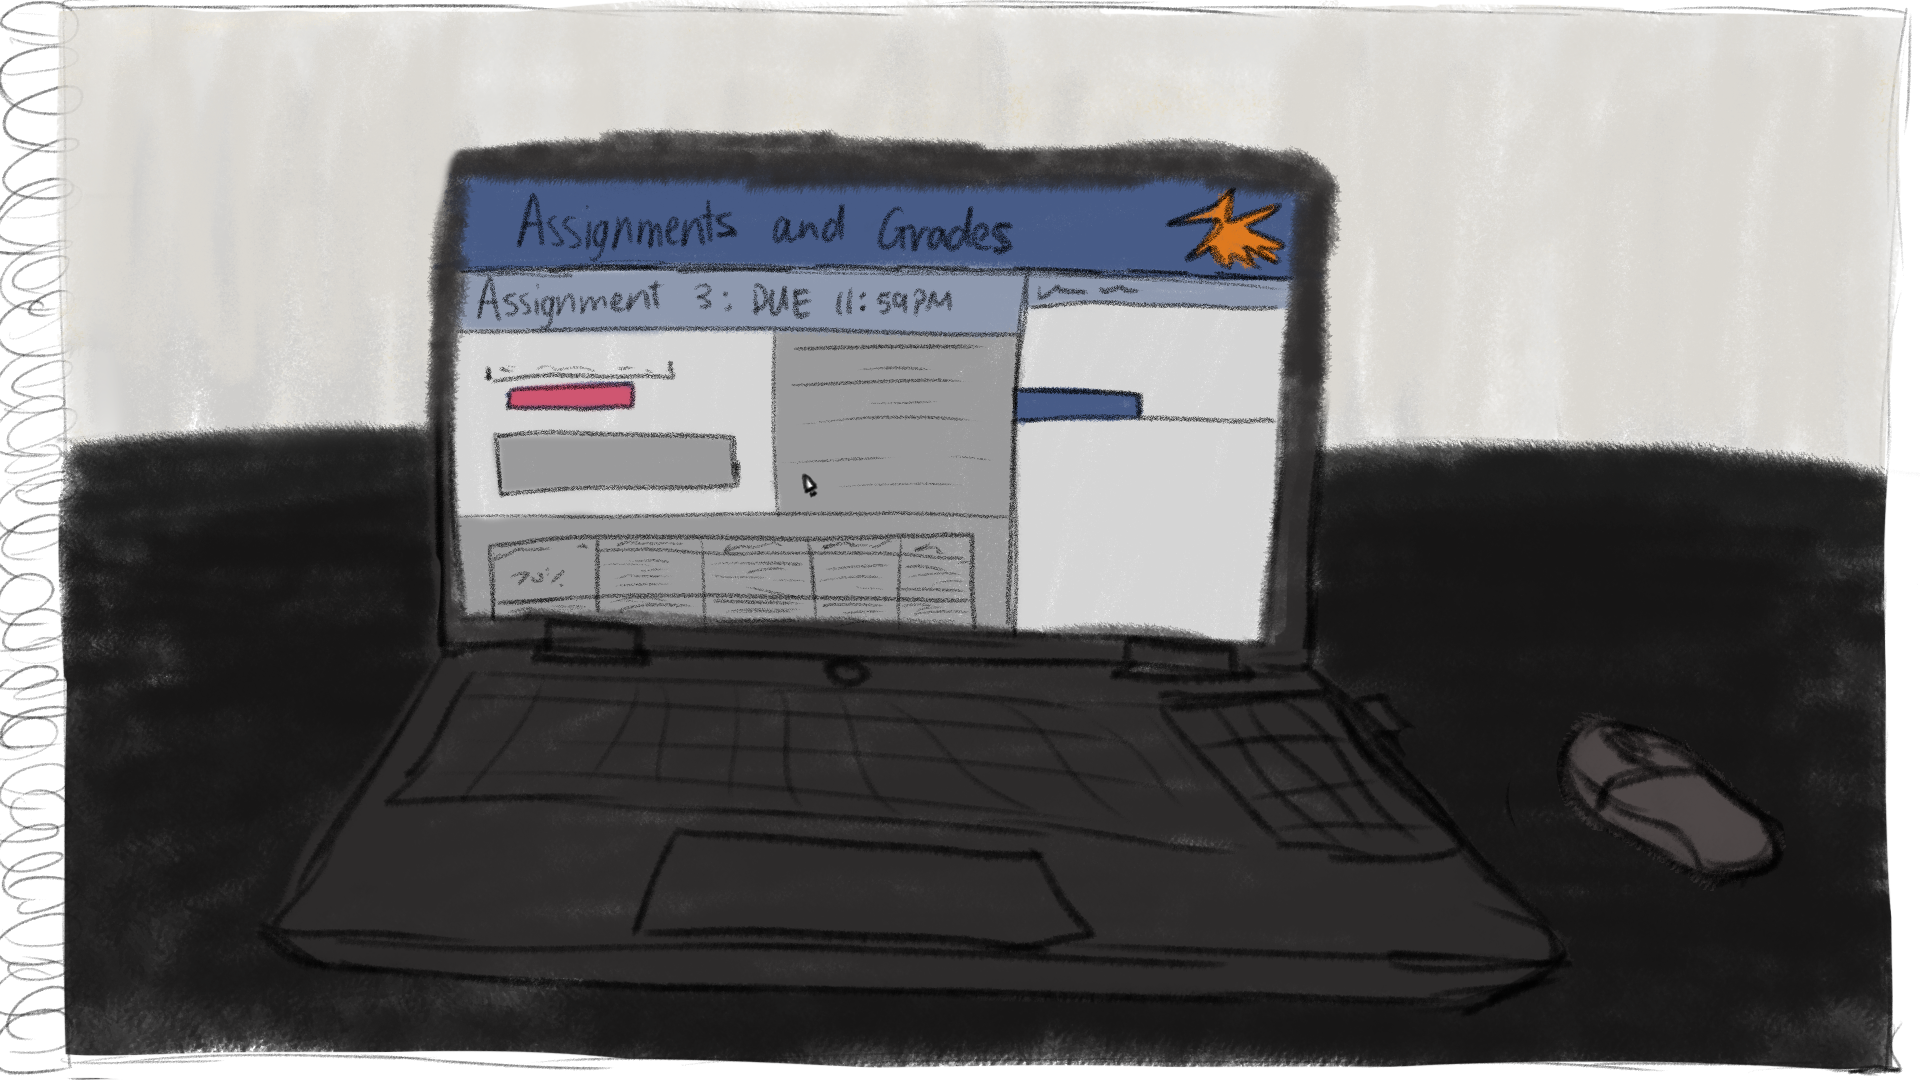 Assignments and Grades
Assignment 3: DUE 11:59PM